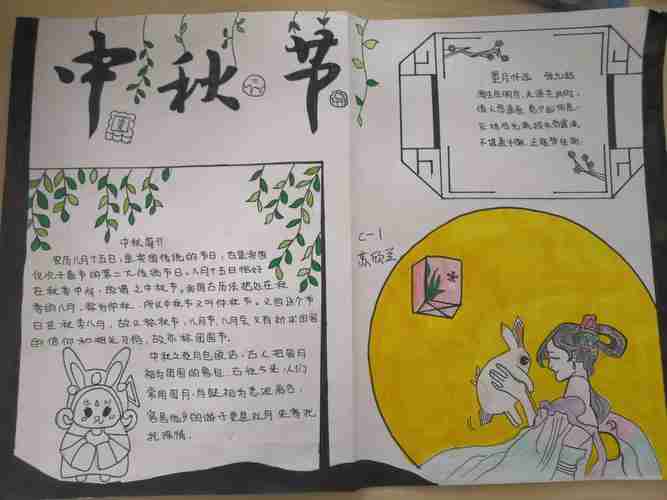 中秋节
望月怀远 张九龄
海上生明月，天涯共此时。
情人怨遥夜，竟夕起相思。
灭烛怜光满，披衣觉露滋。
不堪盈手赠，还寝梦佳期。
C-1
中秋简介
农历八月十五日，是我国传统的节日，
仅次于春节的第二大传统节日。八月十五日恰好
在秋季中间，故谓之中秋节。我国古历法把处在秋
季的八月，称为仲秋，所以中秋节又叫仲秋节。又因这个节
日在秋季八月，故又称秋节、八月节、八月会；又有祈求团圆
的信仰和相关习俗，故亦称团圆节。
中秋之夜月色皎洁，古人把圆月
视为团圆的象征，
常用圆月、月缺
客居他乡的游子更是以月来寄
托深情。